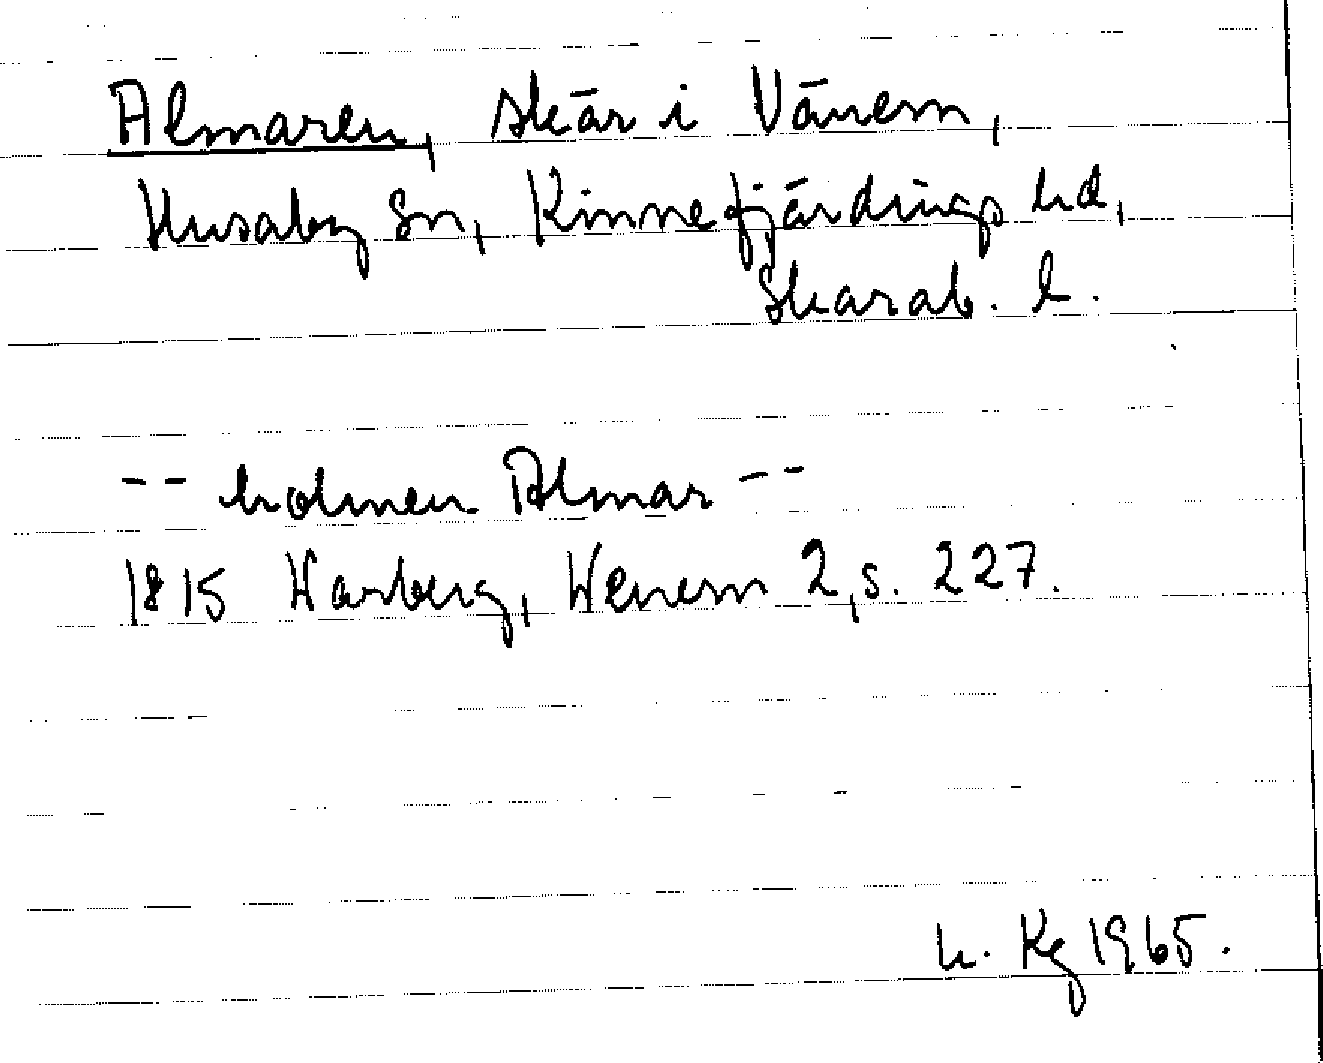 Almaren, skär i Vänern,
Husaby sn, Kinnefjärdings hd,
Skarab. l.
-- holmen Almar --
1815 Warberg, Wenern 2, s. 227.
Kg 1965.